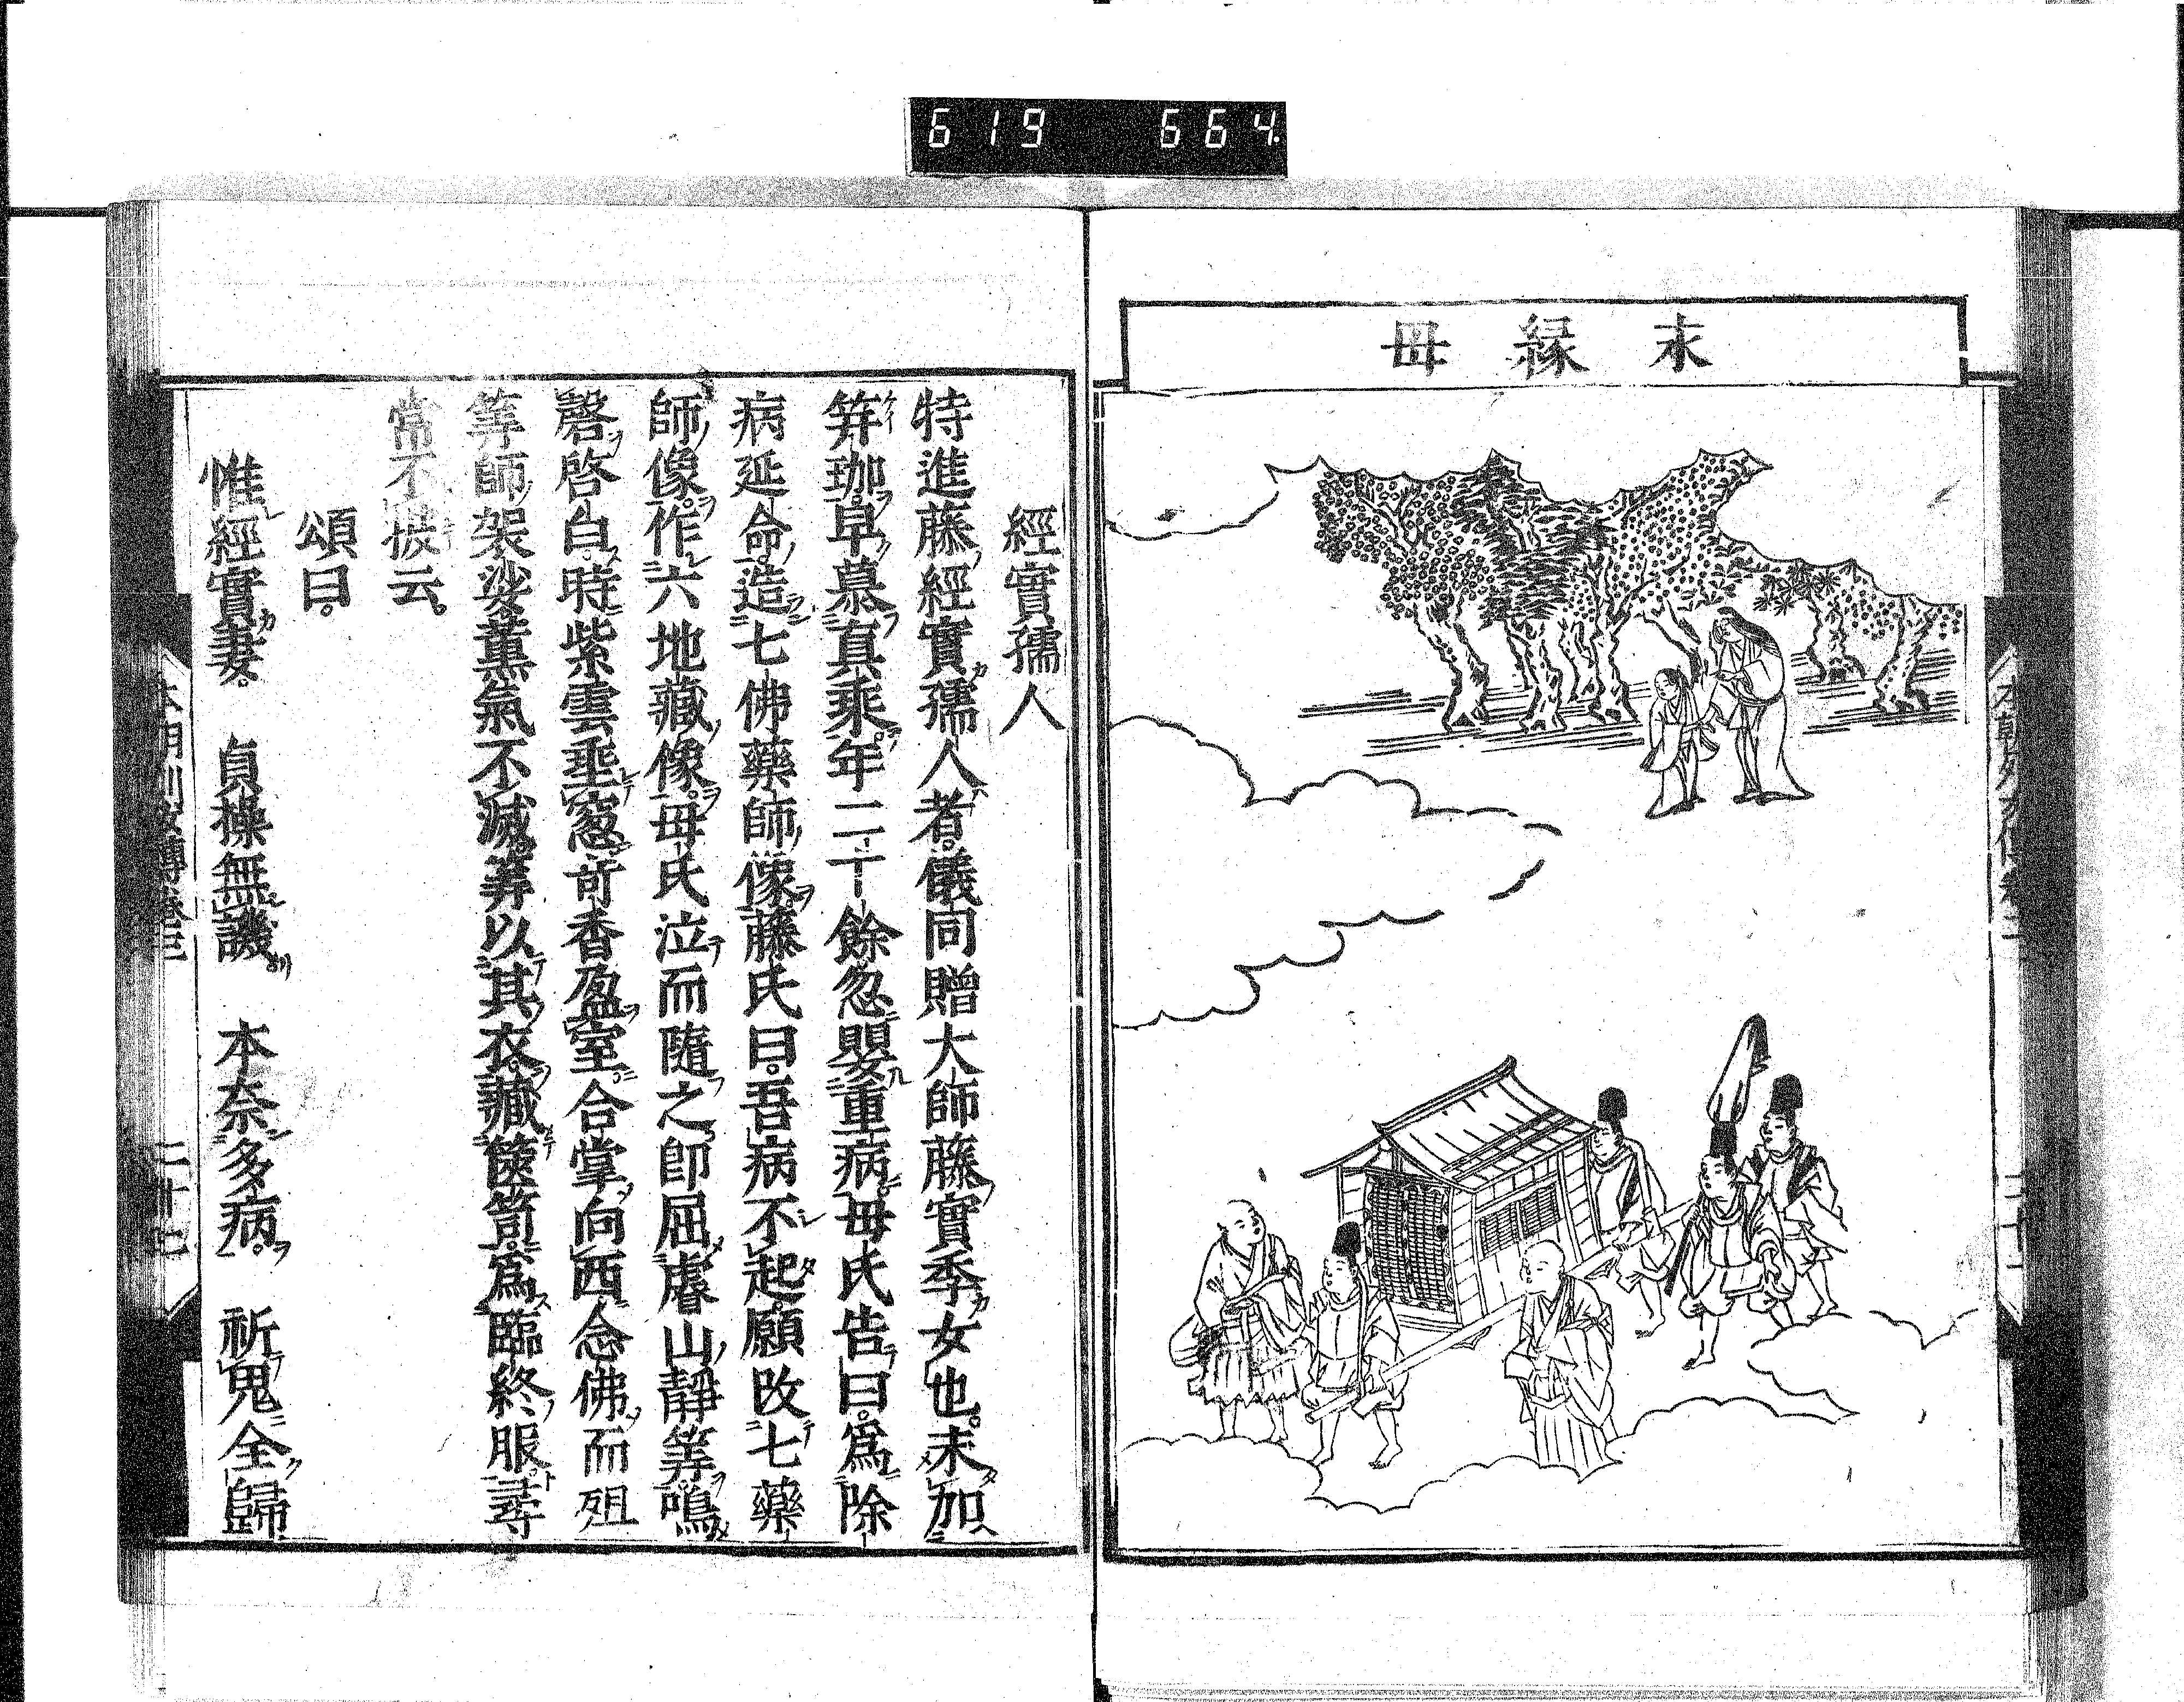 619 664.
末縁毋
經實孺人
特進藤經實孺人者。儀同贈大師藤實季女也。未加
笄珈。早慕真乘。年二十餘忽嬰重病。毋氏告曰。爲除
病延命。造七佛藥師像。藤氏曰。吾病不起。願改七藥
師像。作六地藏像。毋氏泣而隨之。即屈睿山靜筭。鳴
磬啓白。時紫雲垂窓。奇香盈室。合掌向西。念佛而殂。
筭師架娑薰氣不滅。筭以其衣。藏篋笥。爲臨終服。尋
常不披云。
頌曰。
惟經實妻。 貞操無譏。 本奈多病。 祈鬼全歸
本朝列女傳卷三 二十七